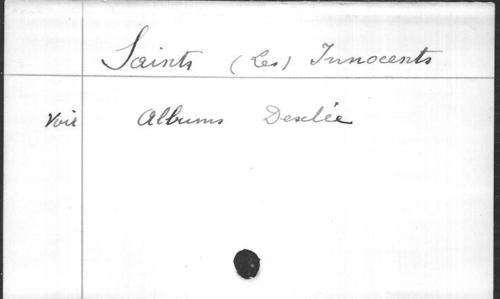 Saints (Les) Innocents
Voir Albums Desclée